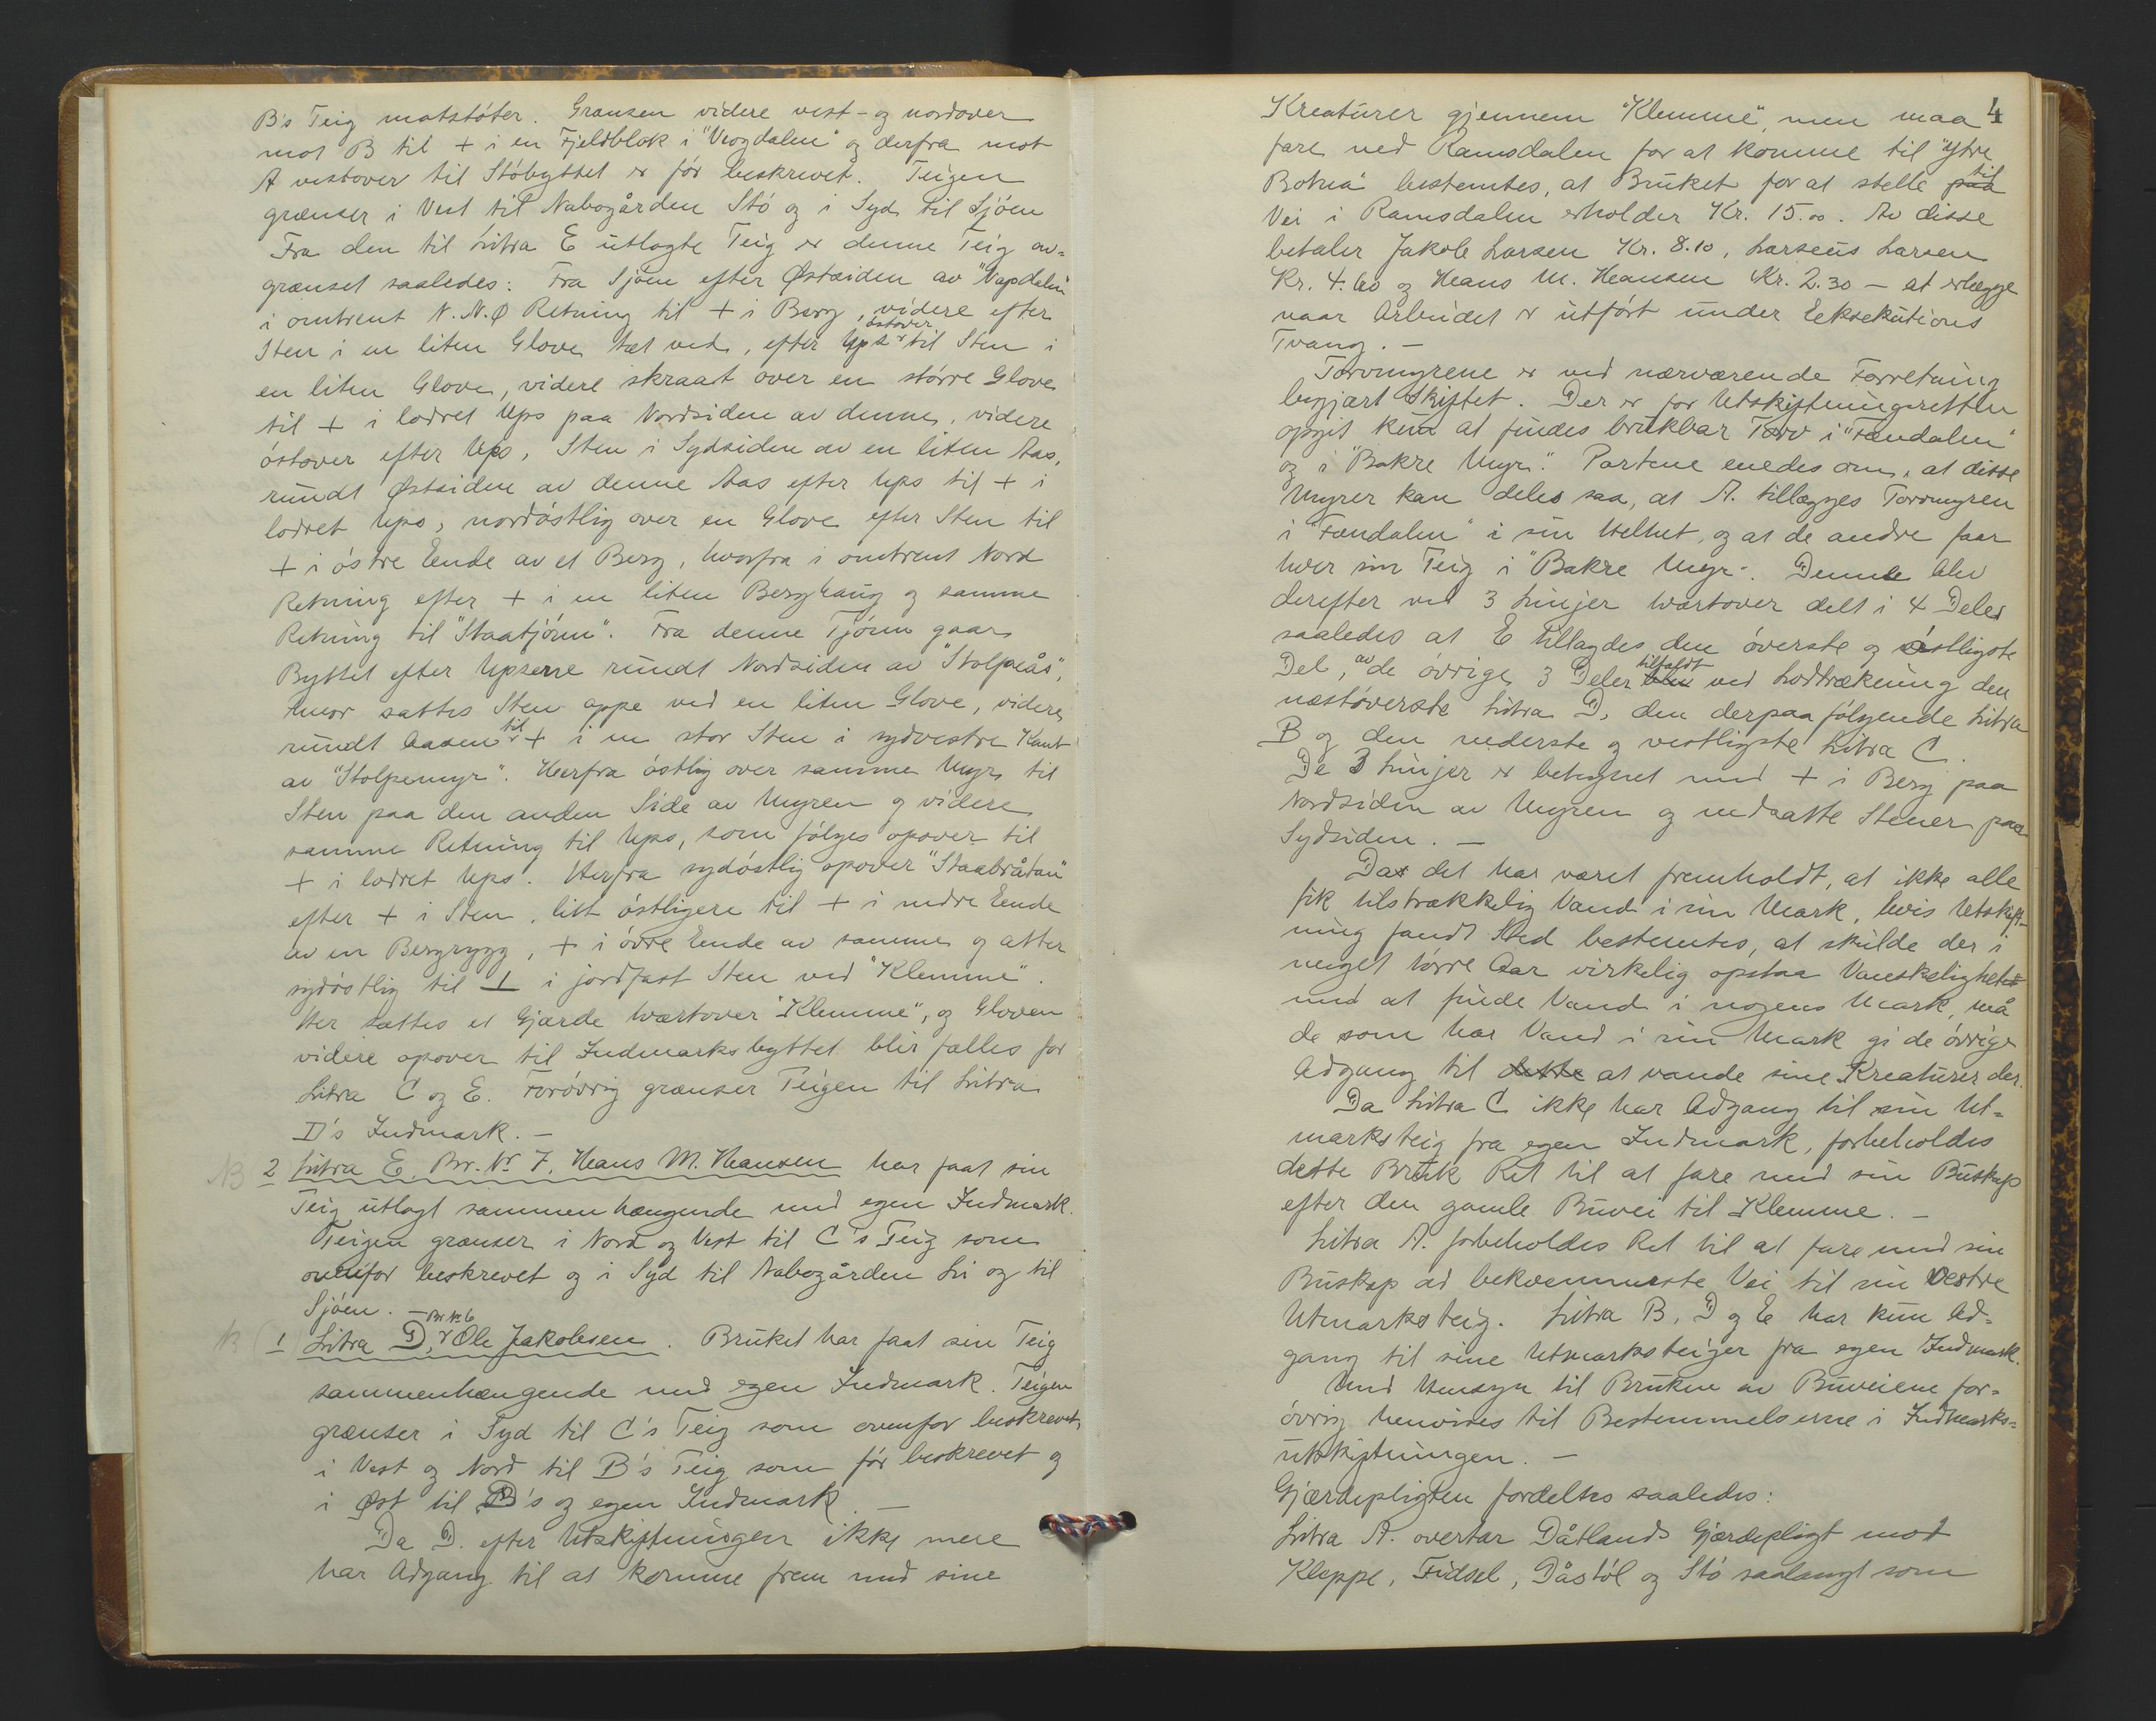 B's Teig motstöter. Grænsen videre vest- og nordover
mot B til + i en Fjeldblok i "Vrogdalen" og derfra mot
A vestover til Stöbyttet er för beskrevet. Teigen
grænser i Vest til Nabogården Stö og i Syd til Sjöen
Fra den til Litra E utlagte Teig er denne Teig av=
grænset saaledes: Fra Sjöen efter Østsiden av "Vapdalen"
i omtrent N.N.Ø Retning til + i Berg, videre efter
Sten i en liten Glove tæt ved, efter Ups östover til Sten i
en liten Glove, videre skraat over en större Glove
til + i lodret Ups paa Nordsiden av denne, videre
östover efter Ups, Sten i Sydsiden av en liten Aas,
rundt Østsiden av denne Aas efter Ups til + i
lodret Ups, nordöstlig over en Glove efter Sten til
+ i östre Ende av et Berg, hvorfra i omtrent Nord
Retning efter + i en liten Berghaug og samme
Retning til "Staatjörnn". Fra denne Tjönn gaar
Byttet efter Upserne rundt Nordsiden av "Stolpeås",
hvor sattes Sten oppe ved en liten Glove, videre
rundt Aasen til + i en stor Sten i sydvestre Kant
av "Stolpemyr". Herfra östlig over samme Myr til
Sten paa den anden Side av Myren og videre
samme Retning til Ups, som fölges opover til
+ i lodret Ups. Herfra sydöstlig opover "Staabråtan"
efter + i Sten, litt östligere til + i nedre Ende
av en Bergrygg, + i övre Ende av samme og atter
sydöstlig til ⊥ i jordfast Sten ved "Klemme".
Her sættes et Gjærde tvertover "Klemme", og Gloven
videre opover til Indmarksbyttet blir fælles for
Litra C og E. Forövrig grænser Teigen til Litra
D's Indmark. —
NB 2 Litra E, Br. Nr 7, Hans M. Hansen har faat sin
Teig utlagt sammenhængende med egen Indmark.
Teigen grænser i Nord og Vest til C's Teig som
ovenfor beskrevet og i Syd til Nabogården Li og til
Sjöen. —
NB (1 Litra D, Br Nr 6 Ole Jakobsen. Bruket har faat sin Teig
sammenhængende med egen Indmark. Teigen
grænser i Syd til C's Teig som ovenfor beskrevet,
i Vest og Nord til B's Teig som för beskrevet og
i Øst til B's og egen Indmark. —
Da D. efter Utskiftningen ikke mere
har Adgang til at komme frem med sine
4
Kreaturer gjennem "Klemme", men maa
fare ved Ramsdalen for at komme til "Ytre
Botnå" bestemtes, at Bruket for at stelle paa til
Vei i Ramsdalen erholder Kr. 15.00. Av disse
betaler Jakob Larsen Kr. 8.10, Larseus Larsen
Kr. 4.60 og Hans M. Hansen Kr. 2.30 — at erlægge
naar Arbeidet er utfört under Eksekutions
Tvang. —
Torvmyrene er ved nærværende Forretning
begjært skiftet. Der er for Utskiftningsretten
opgit kun at findes brukbar Torv i "Fændalen"
og i "Bakre Myr". Partene enedes om, at disse
Myrer kan deles saa, at A. tillægges Torvmyren
i "Fændalen" i sin Helhet, og at de andre faar
hver sin Teig i "Bakre Myr". Denne blev
derefter ved 3 Linjer tvertover delt i 4 Deler
saaledes at E tillagdes den överste og östligste
Del, av de övrige 3 Deler blev tilfaldt ved Lodtrækning den
næstöverste Litra D, den derpaa fölgende Litra
B og den nederste og vestligste Litra C.
De 3 Linjer er betegnet med + i Berg paa
Nordsiden av Myren og nedsatte Stener paa
Sydsiden. —
Da det har været fremholdt, at ikke alle
fik tilstrækkelig Vand i sin Mark, hvis Utskift-
ning fandt Sted bestemtes, at skulde der i
meget törre Aar virkelig opstaa Vanskeligheter
med at finde Vand i nogens Mark, må
de som har Vand i sin Mark gi de övrige
Adgang til dette at vande sine Kreaturer der.
Da Litra C ikke har Adgang til sin Ut=
marksteig fra egen Indmark, forbeholdes
dette Bruk Ret til at fare med sin Buskap
efter den gamle Buvei til Klemme. —
Litra A. forbeholdes Ret til at fare med sin
Buskap ad bekvemmeste Vei til sin vestre
Utmarksteig. Litra B, D og E har kun Ad=
gang til sine Utmarksteiger fra egen Indmark.
Med Hensyn til Bruken av Buveiene for=
övrig henvises til Bestemmelserne i Indmarks=
utskiftningen. —
Gjærdepligten fordeltes saaledes:
Litra A. overtar Dåtlands Gjærdepligt mot
Kleppe, Fidsel, Dåstöl og Stö saalangt som